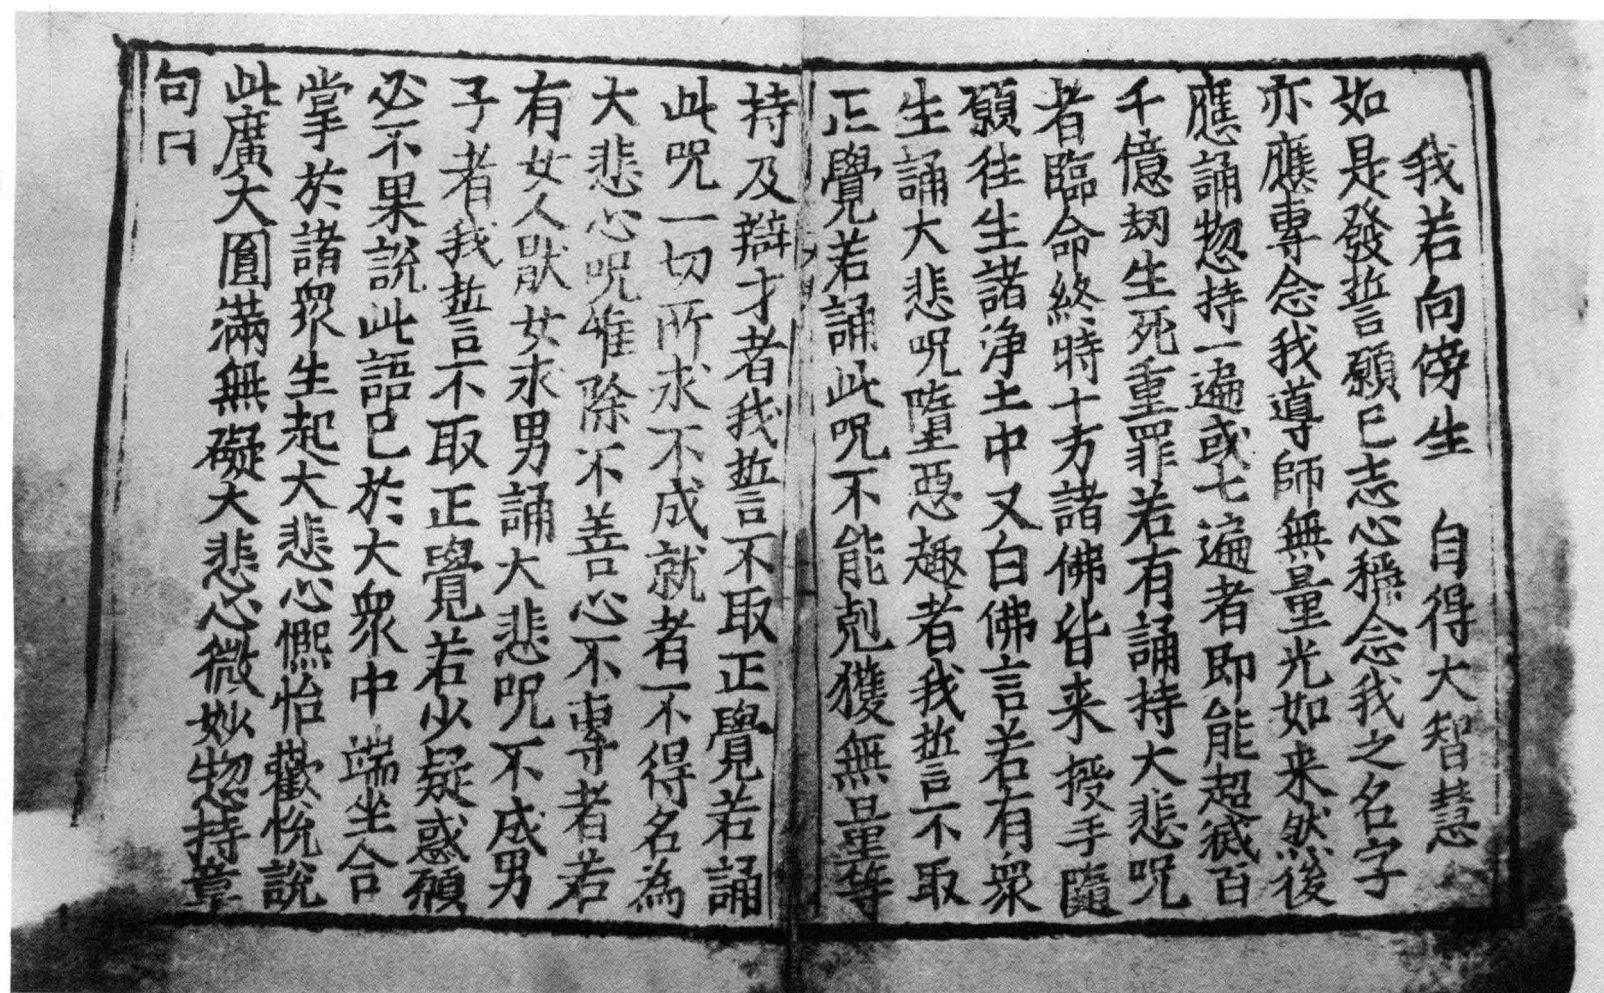 我若向傍生　自得大智慧
如是發誓願已志心稱念我之名字
亦應專念我導師無量光如来然後
應誦惣持一遍或七遍者即能超滅百
千億劫生死重罪若有誦持大悲呪
者臨命終時十方諸佛皆来授手隨
願往生諸淨土中又白佛言若有衆
生誦大悲呪墮惡趣者我誓言不取
正覺若誦此呪不能剋獲無量等
持及辯才者我誓言不取正覺若誦
此呪一切所求不成就者不得名為
大悲心呪惟除不善心不專者若
有女人厭女求男誦大悲呪不成男
子者我誓言不取正覺若少疑惑願
必不果說此語已於大衆中端坐合
掌於諸衆生起大悲心凞怡歡悅說
此廣大圓滿無礙大悲心微妙惣持章
句曰